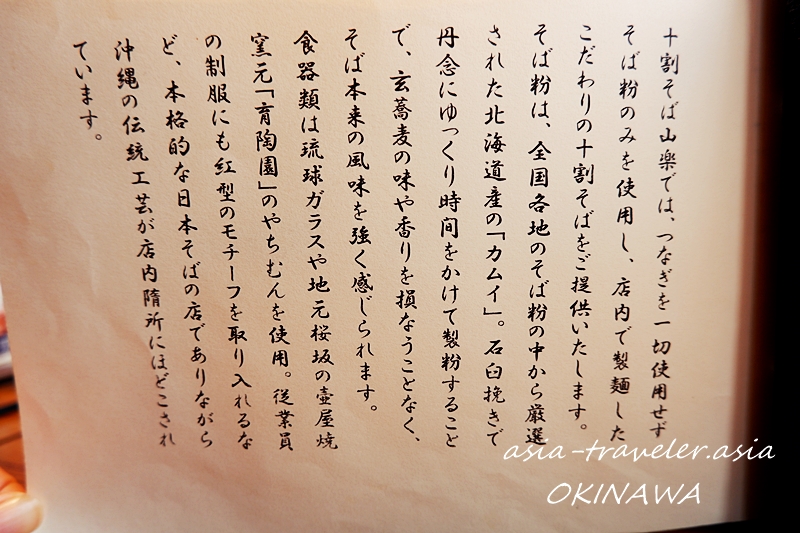 十割そば山楽では、つなぎを一切使用せず
そば粉のみを使用し、店内で製麺した
こだわりの十割そばをご提供いたします。
そば粉は、全国各地のそば粉の中から厳選
された北海道産の「カムイ」。石臼挽きで
丹念にゆっくり時間をかけて製粉すること
で、玄蕎麦の味や香りを損なうことなく、
そば本来の風味を強く感じられます。
食器類は琉球ガラスや地元桜坂の壺屋焼
窯元「育陶園」のやちむんを使用。従業員
の制服にも紅型のモチーフを取り入れるな
ど、本格的な日本そばの店でありながら
沖縄の伝統工芸が店内随所にほどこされ
ています。
asia-traveler.asia
OKINAWA